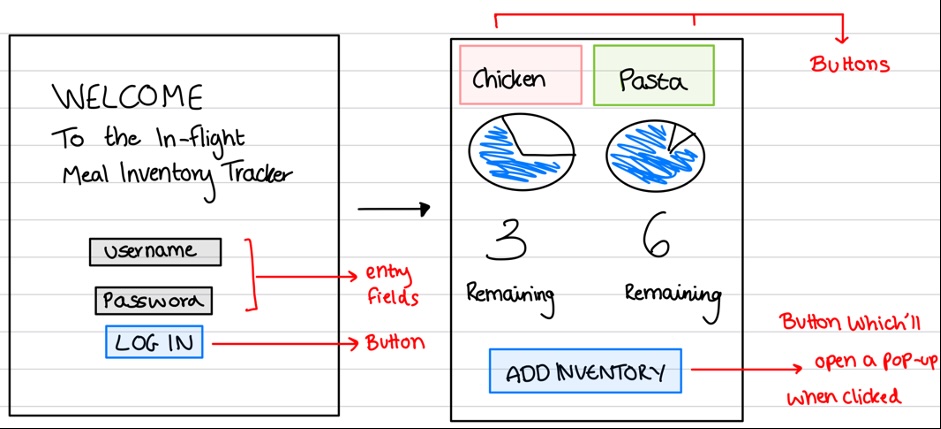 WELCOME
To the In-flight
Meal Inventory Tracker
username
Password
LOG IN
entry
fields
Button
Chicken
Pasta
Buttons
3
6
Remaining
Remaining
ADD INVENTORY
Button which'll
open a pop-up
when clicked